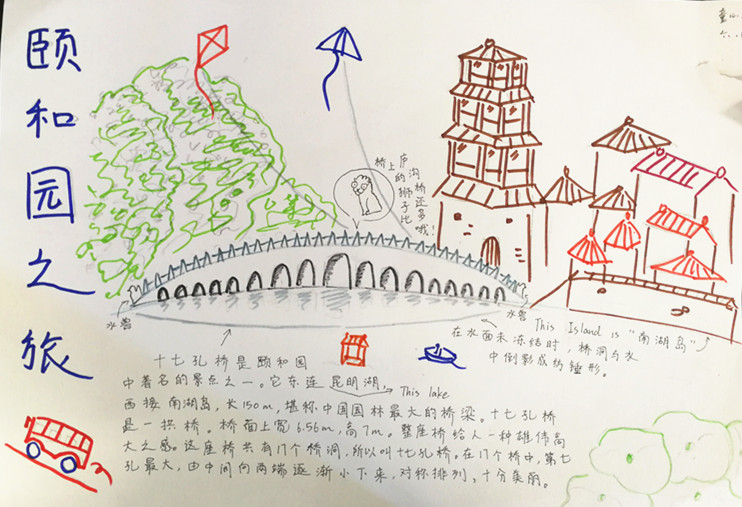 颐和园之旅
桥上的狮子比
卢沟桥还多哦!
水兽
水兽
This Island is "南湖岛"
在水面未冻结时,桥洞与水
中倒影成纺锤形。
十七孔桥是颐和园
中著名的景点之一。它东连昆明湖,
This lake
西接南湖岛,长150m,堪称中国园林最大的桥梁。十七孔桥
是一拱桥。桥面上宽6.56m,高7m。整座桥给人一种雄伟高
大之感。这座桥共有17个桥洞,所以叫十七孔桥。在17个桥中,第七
孔最大,由中间向两端逐渐小下来,对称排列,十分美丽。